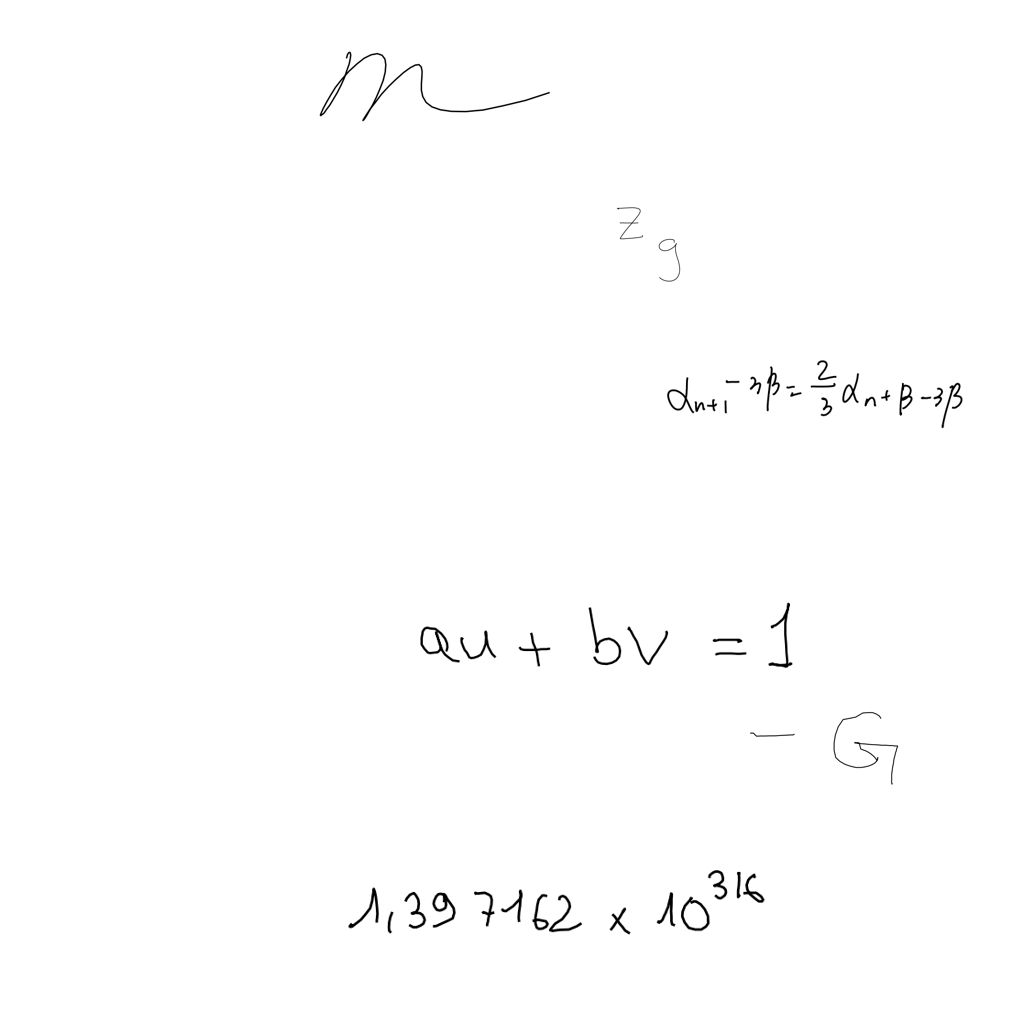 m
z g
α_{n+1} - 3β = \frac{2}{3} α_n + β - 3β
au + bv = 1
- G
1,397162 × 10^{316}